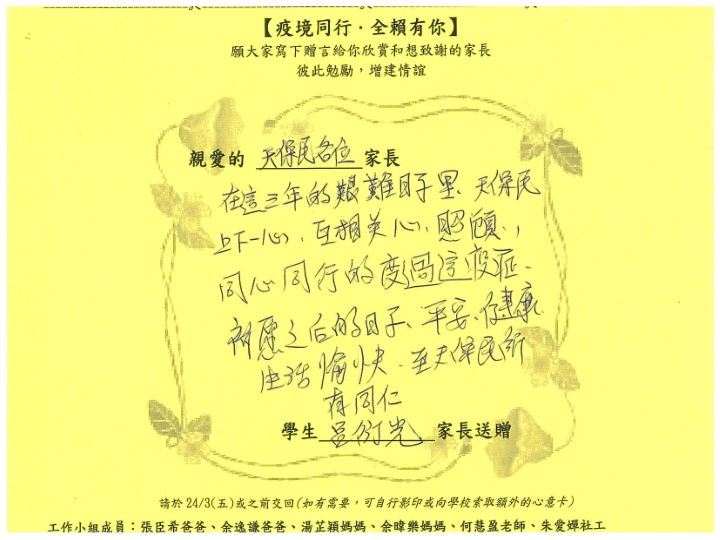 【疫境同行‧全賴有你】
願大家寫下贈言給你欣賞和想致謝的家長
彼此勉勵，增建情誼
親愛的 天保民各位 家長
在這三年的艱難日子里、天保民
上下一心、互相关心、照顧，
同心同行的度過這疫症、
祈愿之后的日子、平安、健康
生活愉快、至天保民所
有同仁
學生 呂衍光 家長送贈
請於 24/3(五)或之前交回(如有需要，可自行影印或向學校索取額外的心意卡)
工作小組成員：張臣希爸爸、余逸謙爸爸、湯芷穎媽媽、余暐樂媽媽、何慧盈老師、朱愛嬋社工